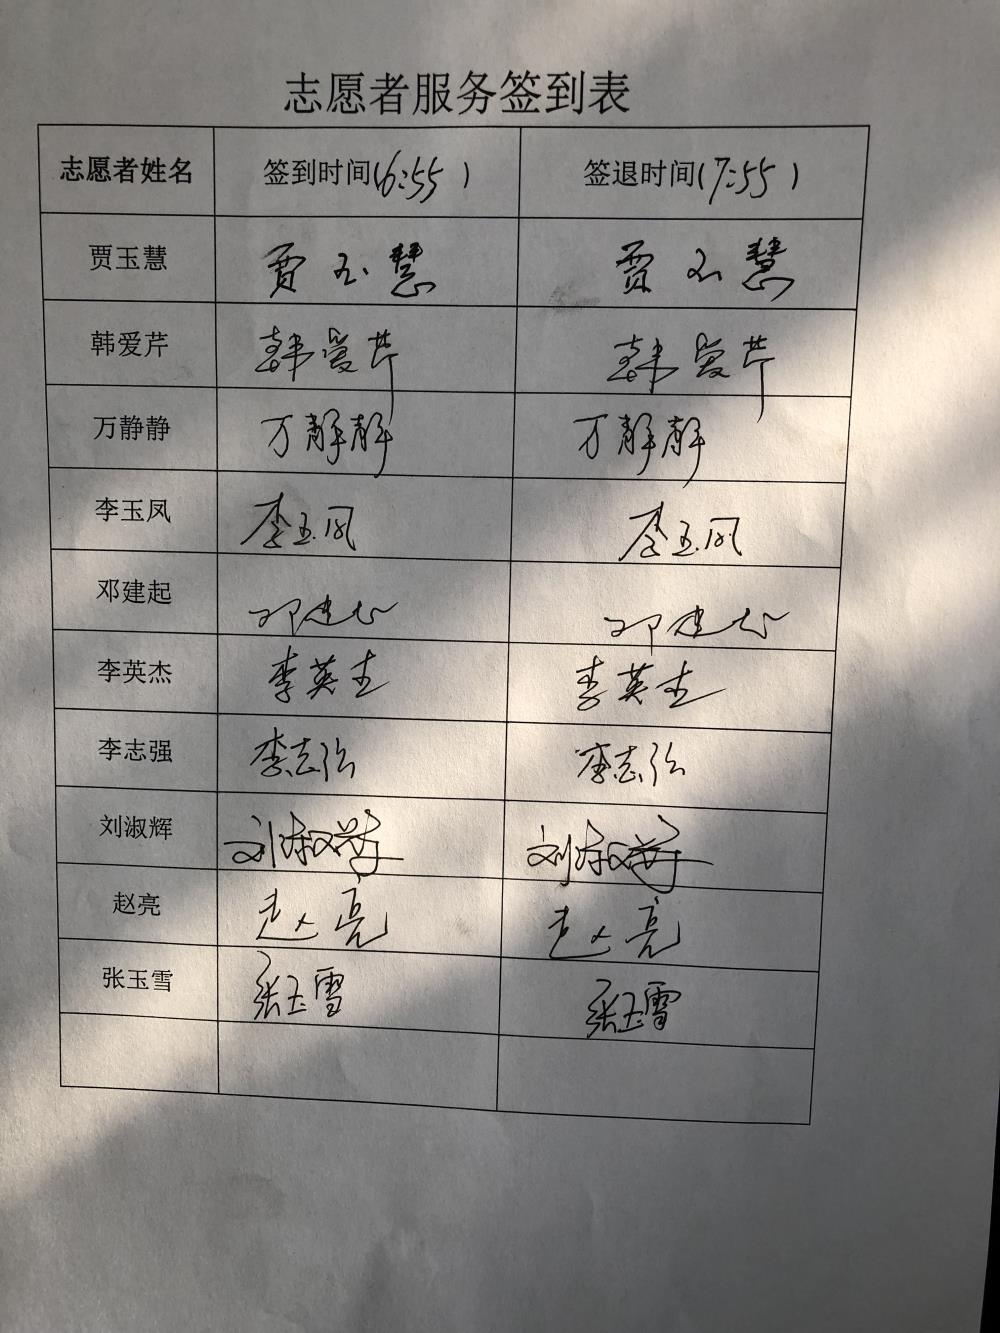 志愿者服务签到表
志愿者姓名 签到时间(6:55) 签退时间(7:55)
贾玉慧 贾玉慧 贾玉慧
韩爱芹 韩爱芹 韩爱芹
万静静 万静静 万静静
李玉凤 李玉凤 李玉凤
邓建起 邓建起 邓建起
李英杰 李英杰 李英杰
李志强 李志强 李志强
刘淑辉 刘淑辉 刘淑辉
赵亮 赵亮 赵亮
张玉雪 张玉雪 张玉雪